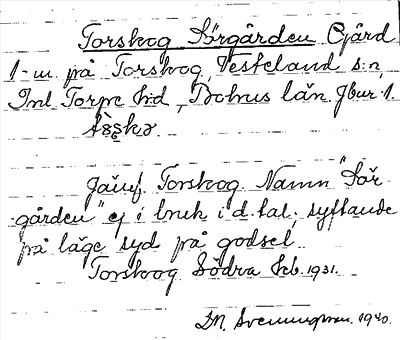 Torskog Sörgården Gård
1-m på Torskog, Västerland s:n,
Inl Torpe h:d, Bohus län Jbnr 1.
Jämf Torskog Namn "Sör
gården" ej i bruk i d. tal. syftande
på läge syd på godset
Torskog Södra Kb. 1931.
1940.